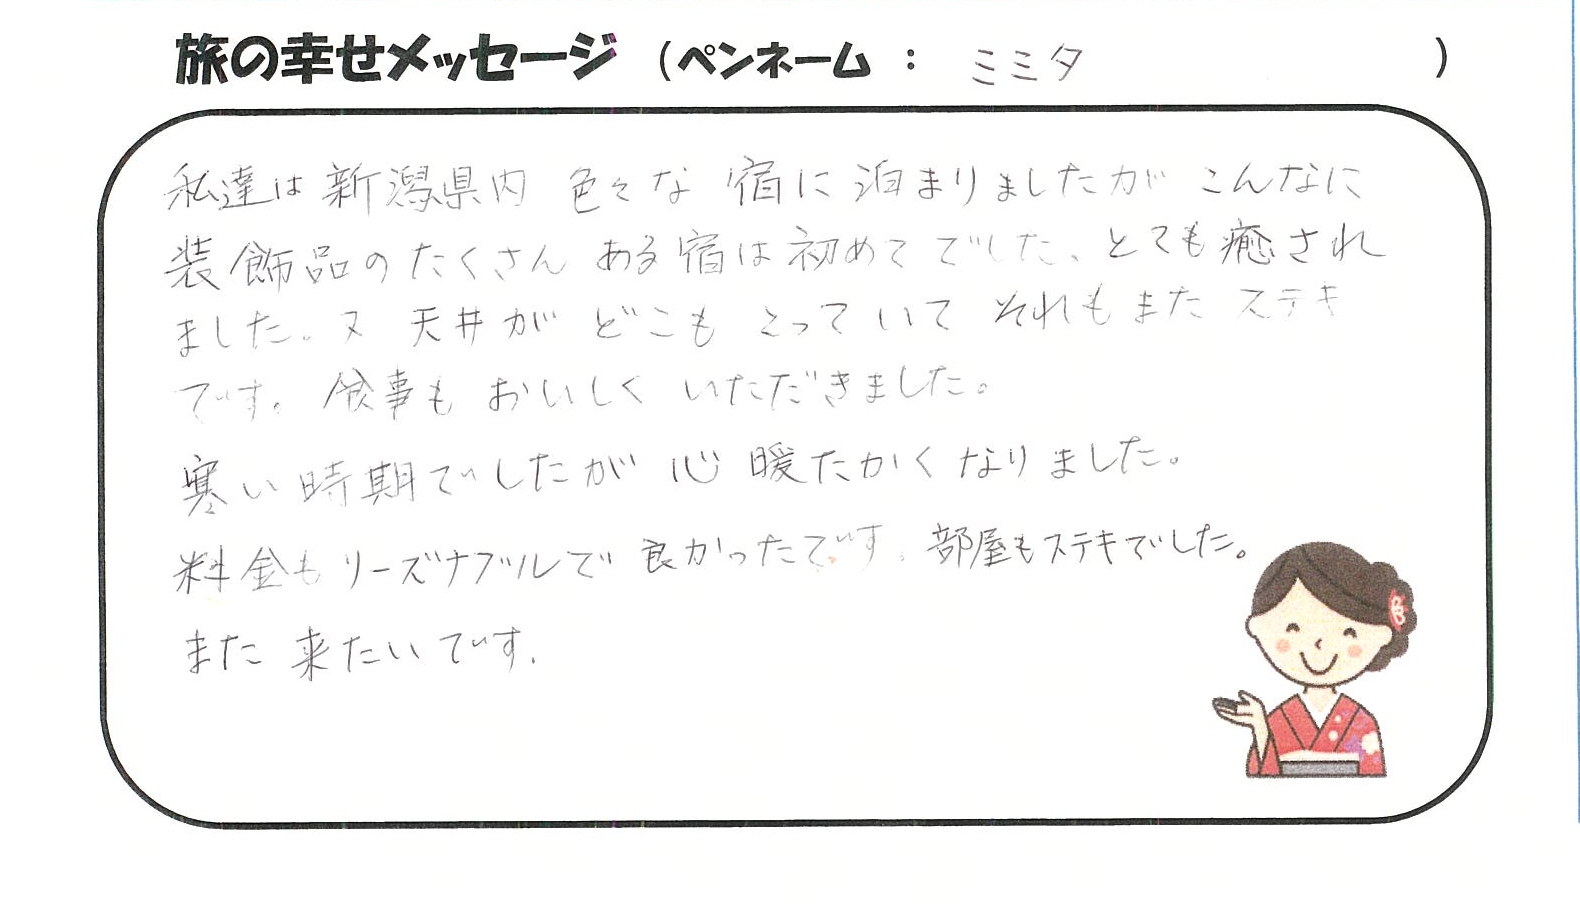 旅の幸せメッセージ（ペンネーム： ミミタ ）
私達は新潟県内 色々な 宿に 泊まりましたが こんなに
装飾品のたくさん ある宿は初めて でした、とても癒され
ました。又 天井が どこも とって いて それもまた ステキ
です。食事も おいしく いただきました。
寒い時期でしたが 心 暖たかく なりました。
料金もリーズナブルで 良かったです。部屋もステキでした。
また 来たいです.